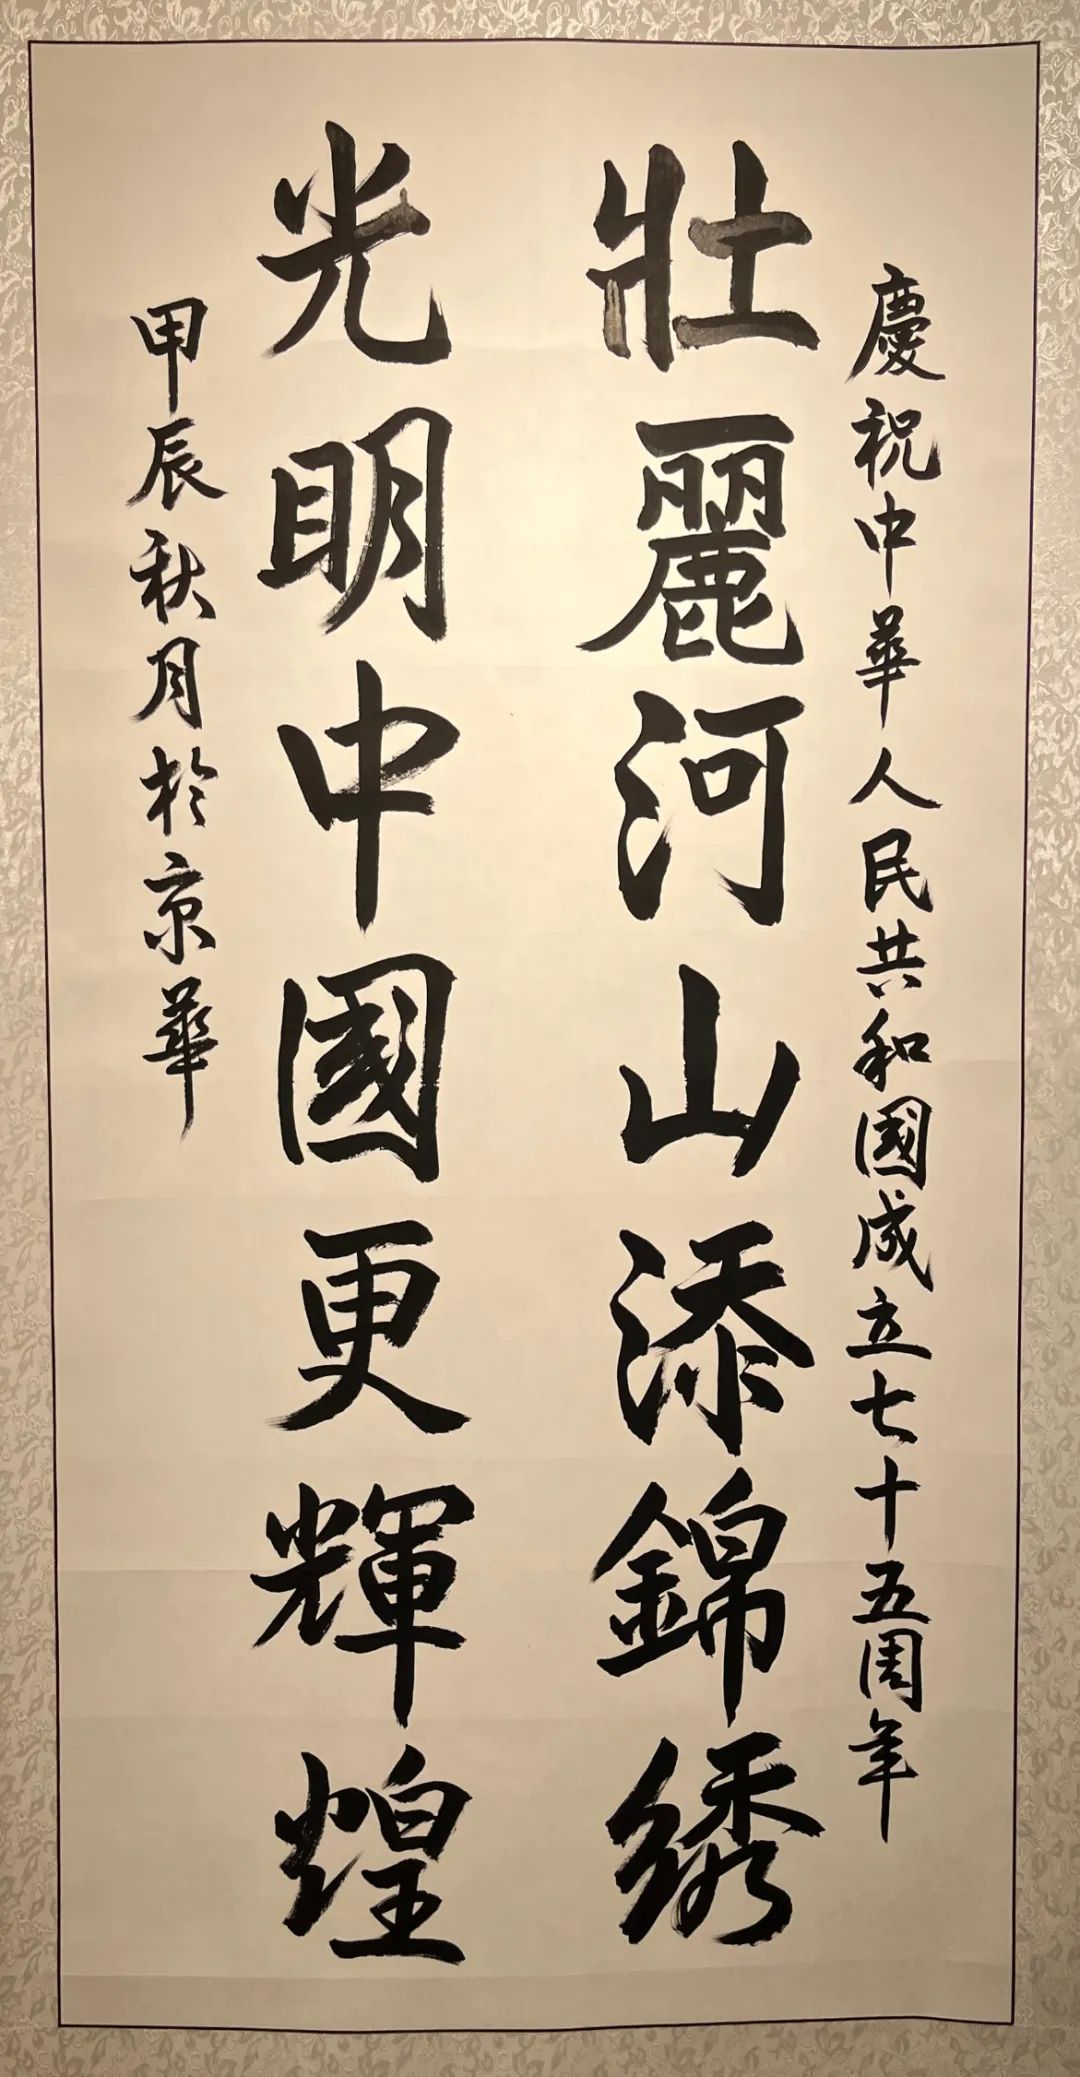 慶祝中華人民共和國成立七十五周年
壯麗河山添錦綉
光明中國更輝煌
甲辰秋月於京華